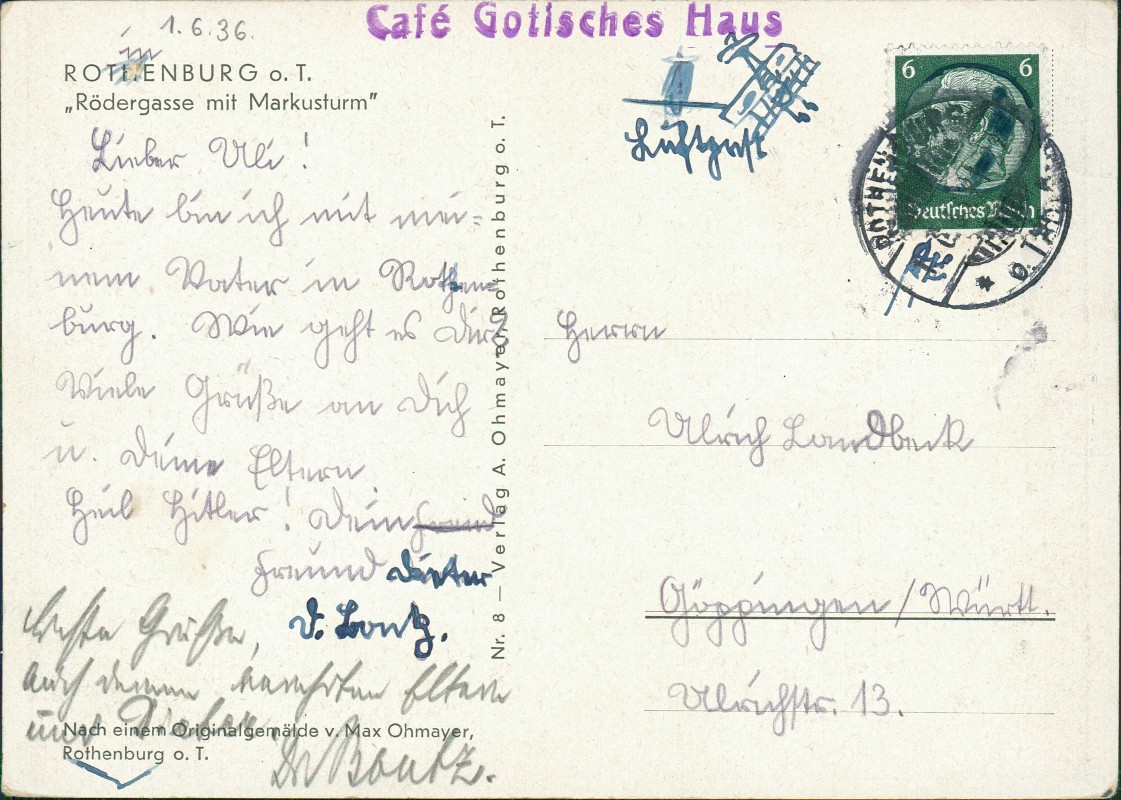 1.6.36.
Café Gotisches Haus
in
ROTHENBURG o. T.
„Rödergasse mit Markusturm”
Lieber Uli!
Heute bin ich mit mei=
nem Vater in Rothen=
burg. Wie geht es Dir?
Viele Grüße an Dich
u. Deine Eltern.
Heil Hitler! Dein Freund
Freund Dieter
D. Bontz.
Beste Grüße,
auch deinen verehrten Eltern
Dr Bontz.
Nach einem Originalgemälde v. Max Ohmayer,
Rothenburg o. T.
Nr. 8 – Verlag A. Ohmayer, Rothenburg o. T.
Luftpost
6 6
Deutsches Reich
ROTHENBURG
* o. TAUBER
Herrn
Ulrich Landbeck
Göppingen/Württ.
Ulrichstr. 13.